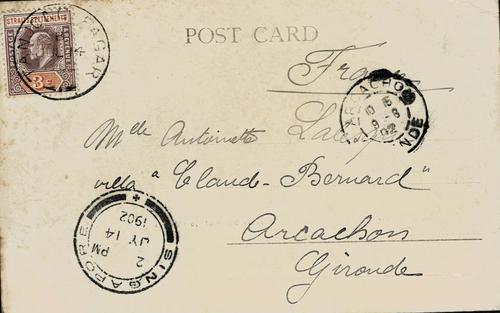 POSTAGE & REVENUE
STRAITS SETTLEMENTS
3c
TANJONG PAGAR
POST CARD
France
ARCACHON
10 15
9 -8
02
GIRONDE
Mlle Antoinette
villa "Claude-Bernard"
Arcachon
Gironde
SINGAPORE
2 PM
JY 14
1902